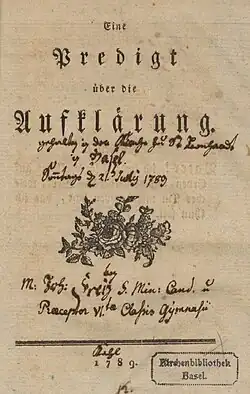 Eine
Predigt
über die
Aufklärung.
gehalten in der Kirche zu St Leonhardt
in Basel
Sonntags d 2 July 1789
by
M: Joh: S: Min: Cand: u
Præceptor VI.ta Classis Gymnasii
Basel
1789.
Kirchenbibliothek
Basel.